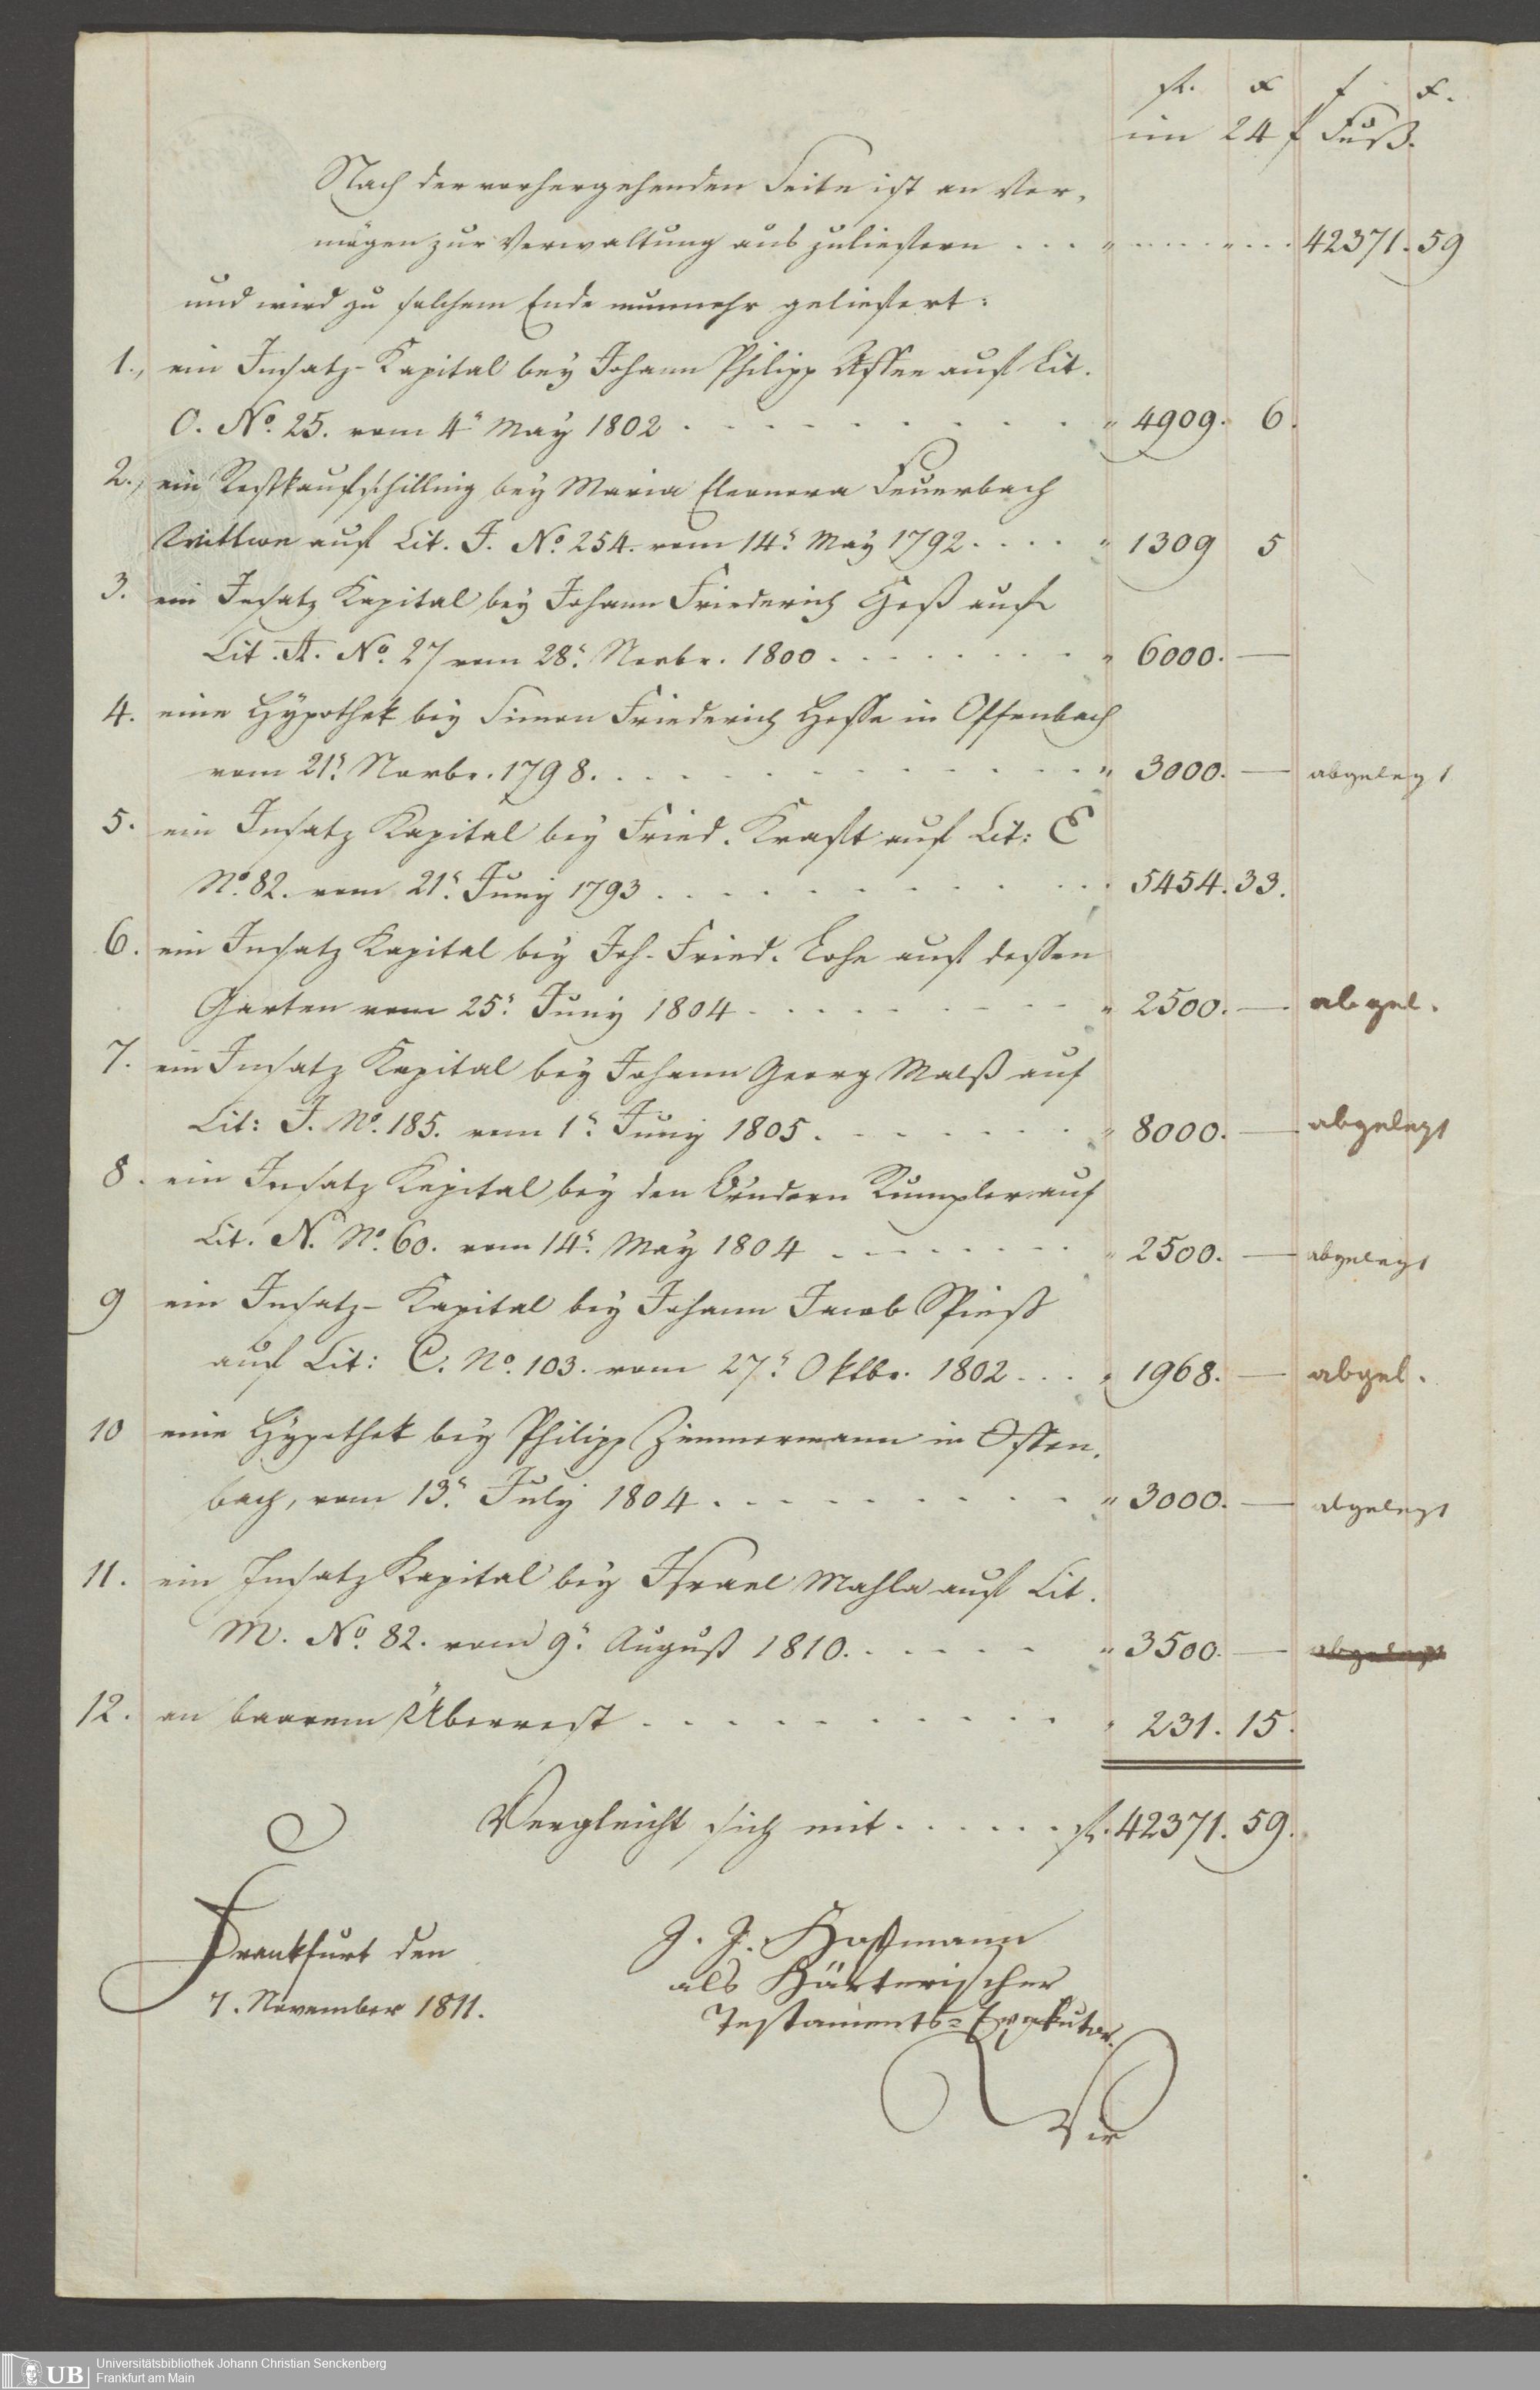 fl. x f x.
im 24 f Fuß.
Nach der vorhergehenden Seite ist an Ver-
mögen zur Verwaltung aus zuliefern . . . " . . . . " . . . 42371. 59
und wird zu solchem Ende nunmehr geliefert:
1., ein Insatz-Kapital bey Johann Philipp auf Lit.
O. No. 25. vom 4n May 1802 . . . . . . . . . " 4909. 6.
2., ein Restkaufschilling bey Maria Eleonora Feuerbach
Wittwe auf Lit. J. No. 254. vom 14n May 1792. . . . " 1309 5
3. ein Insatz Kapital bey Johann Friederich auf
Lit. A. No. 27 vom 28n Novbr. 1800 . . . . . . . . " 6000. —
4. eine Hypothek bey Simon Friederich Hesse in Offenbach
vom 21n Novbr. 1798. . . . . . . . . . . . . " 3000. — abgelegt
5. ein Insatz Kapital bey Fried. Kraft auf Lit: E
No. 82. vom 21n Juny 1793 . . . . . . . . . . . 5454. 33.
6. ein Insatz Kapital bey Joh. Fried. auf dessen
Garten vom 25n Juny 1804 . . . . . . . . . " 2500. — abgel.
7. ein Insatz Kapital bey Johann Georg Malß auf
Lit: J. No. 185. vom 1n Juny 1805 . . . . . . . . " 8000. — abgelegt
8. ein Insatz Kapital bey den Rumpler auf
Lit. N. No. 60. vom 14n May 1804 . . . . . . . " 2500. — abgelegt
9 ein Insatz-Kapital bey Johann Jacob Spieß
auf Lit: C. No. 103. vom 27n Oktbr. 1802 . . . " 1968. — abgel.
10 eine Hypothek bey Philipp Zimmermann in Offen-
bach, vom 13n July 1804 . . . . . . . . . . " 3000. — abgelegt
11. ein Insatz Kapital bey Israel Mahla auf Lit.
M. No. 82. vom 9n August 1810. . . . . . . " 3500. — abgelegt
12. an baarem Überrest . . . . . . . . . . . " 231. 15.
Vergleicht sich mit . . . . . . fl. 42371. 59.
Frankfurt den
7. November 1811.
J. J. Hoffmann
als Härterischer
Testaments-Exekutor.
Universitätsbibliothek Johann Christian Senckenberg
Frankfurt am Main
UB